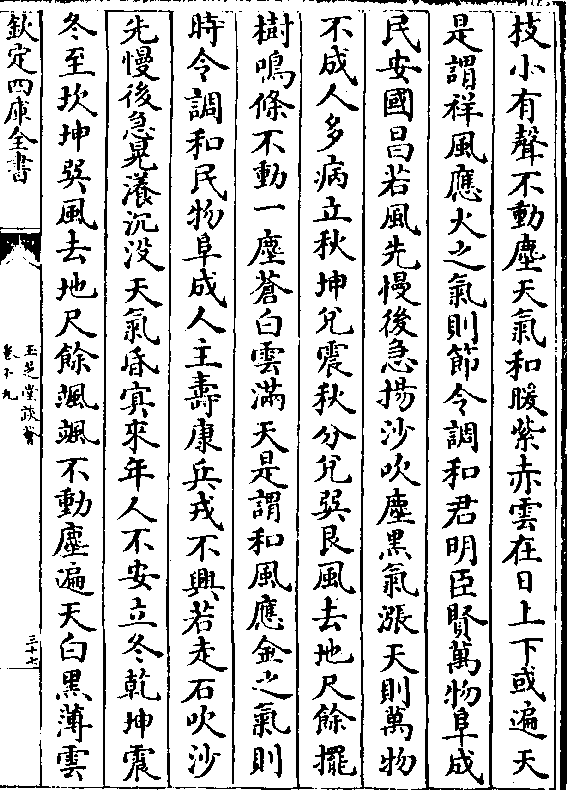 枝小有聲不動塵天氣和暖紫赤雲在日上下或遍天
是謂祥風應火之氣則節令調和君明臣賢萬物阜成
民安國昌若風先慢後急揚沙吹塵黑氣漲天則萬物
不成人多病立秋坤兊震秋分兊巽艮風去地尺餘擺
樹鳴條不動一塵蒼白雲滿天是謂和風應金之氣則
時令調和民物阜成人主壽康兵戎不興若走石吹沙
先慢後急晃瀁沉没天氣昏寘來年人不安立冬乾坤震
冬至坎坤巽風去地尺餘颯颯不動塵遍天白黑薄雲
欽定四庫全書
玉芝堂談薈
卷十九
三十七